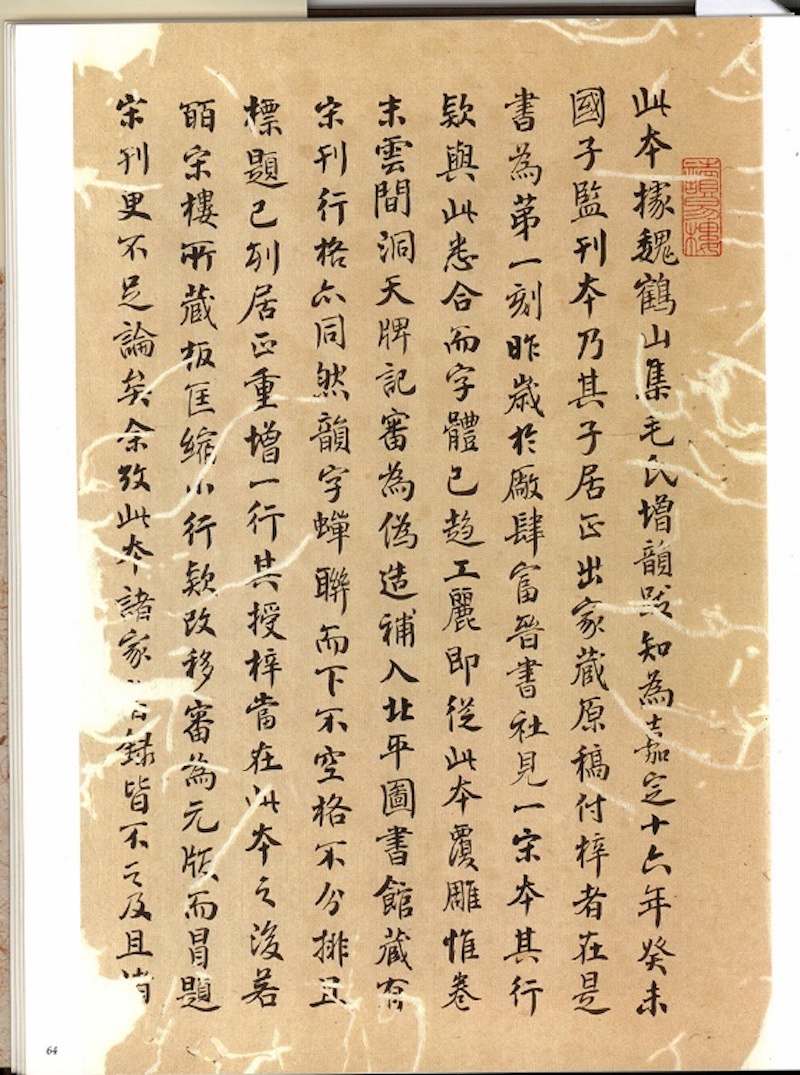 此本據魏鶴山集毛氏增韻跋知為嘉定十六年癸未
國子監刊本乃其子居正出家藏原稿付梓者在是
書為苐一刻昨歲於廠肆富晉書社見一宋本其行
欵與此悉合而字體已趋工麗即從此本覆雕惟卷
末雲間洞天牌記審為偽造補入北平圖書館藏有
宋刊行格亦同然韻字蟬聯而下不空格不分排且
標題已列居正重增一行其授梓當在此本之後若
皕宋樓所藏板匡縮小行欵改移審為元版而冒題
宋刊更不足論矣余攷此本諸家錄皆不之及且
64